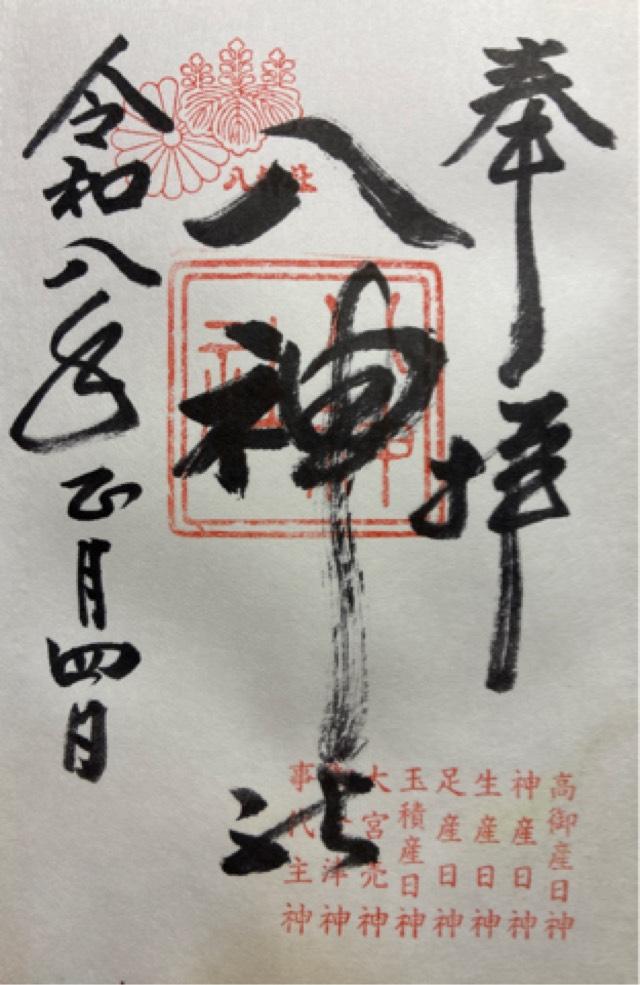 奉拝
八神社
八神社
令和八年正月四日
高御産日神
神産日神
生産日神
足産日神
玉積産日神
大宮売神
津神
事代主神